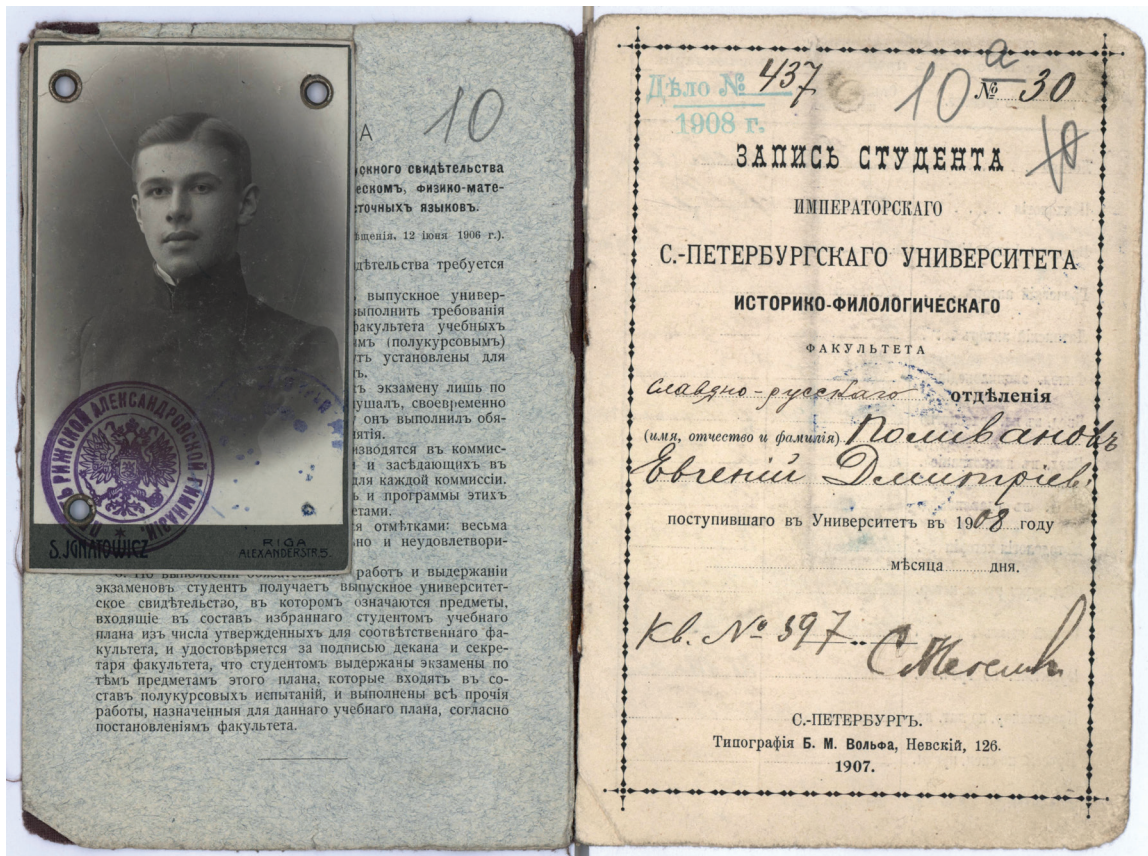 10
А
скного свидѣтельства
ескомъ, физико-мате-
сточныхъ языковъ.
ѣщенія. 12 іюня 1906 г.).
дѣтельства требуется
выпускное универ-
выполнить требованія
факультета учебныхъ
имъ (полукурсовымъ)
утъ установлены для
ъ экзамену лишь по
лушалъ, своевременно
онъ выполнилъ обя-
нятія.
изводятся въ коммис-
и засѣдающихъ въ
для каждой коммиссіи.
ь и программы этихъ
етами.
отмѣтками: весьма
но и неудовлетвори-
РИЖСКОЙ АЛЕКСАНДРОВСКОЙ ГИМНАЗІИ
S. JGNATOWICZ RIGA
ALEXANDERSTR. 5.
работъ и выдержаніи
экзаменовъ студентъ получаетъ выпускное университет-
ское свидѣтельство, въ которомъ означаются предметы,
входящіе въ составъ избраннаго студентомъ учебнаго
плана изъ числа утвержденныхъ для соотвѣтственнаго фа-
культета, и удостовѣряется за подписью декана и секре-
таря факультета, что студентомъ выдержаны экзамены по
тѣмъ предметамъ этого плана, которые входятъ въ со-
ставъ полукурсовыхъ испытаній, и выполнены всѣ прочія
работы, назначенныя для даннаго учебнаго плана, согласно
постановленіямъ факультета.
Дѣло № 437
1908 г.
10 а
№ 30
10
ЗАПИСЬ СТУДЕНТА
ИМПЕРАТОРСКАГО
С.-ПЕТЕРБУРГСКАГО УНИВЕРСИТЕТА
ИСТОРИКО-ФИЛОЛОГИЧЕСКАГО
ФАКУЛЬТЕТА
славяно-русскаго отдѣленія
(имя, отчество и фамилія) Поливановъ
Евгеній Дмитріев.
поступившаго въ Университетъ въ 1908 году
мѣсяца дня.
Кв. № 397
С.-ПЕТЕРБУРГЪ.
Типографія Б. М. Вольфа, Невскій, 126.
1907.